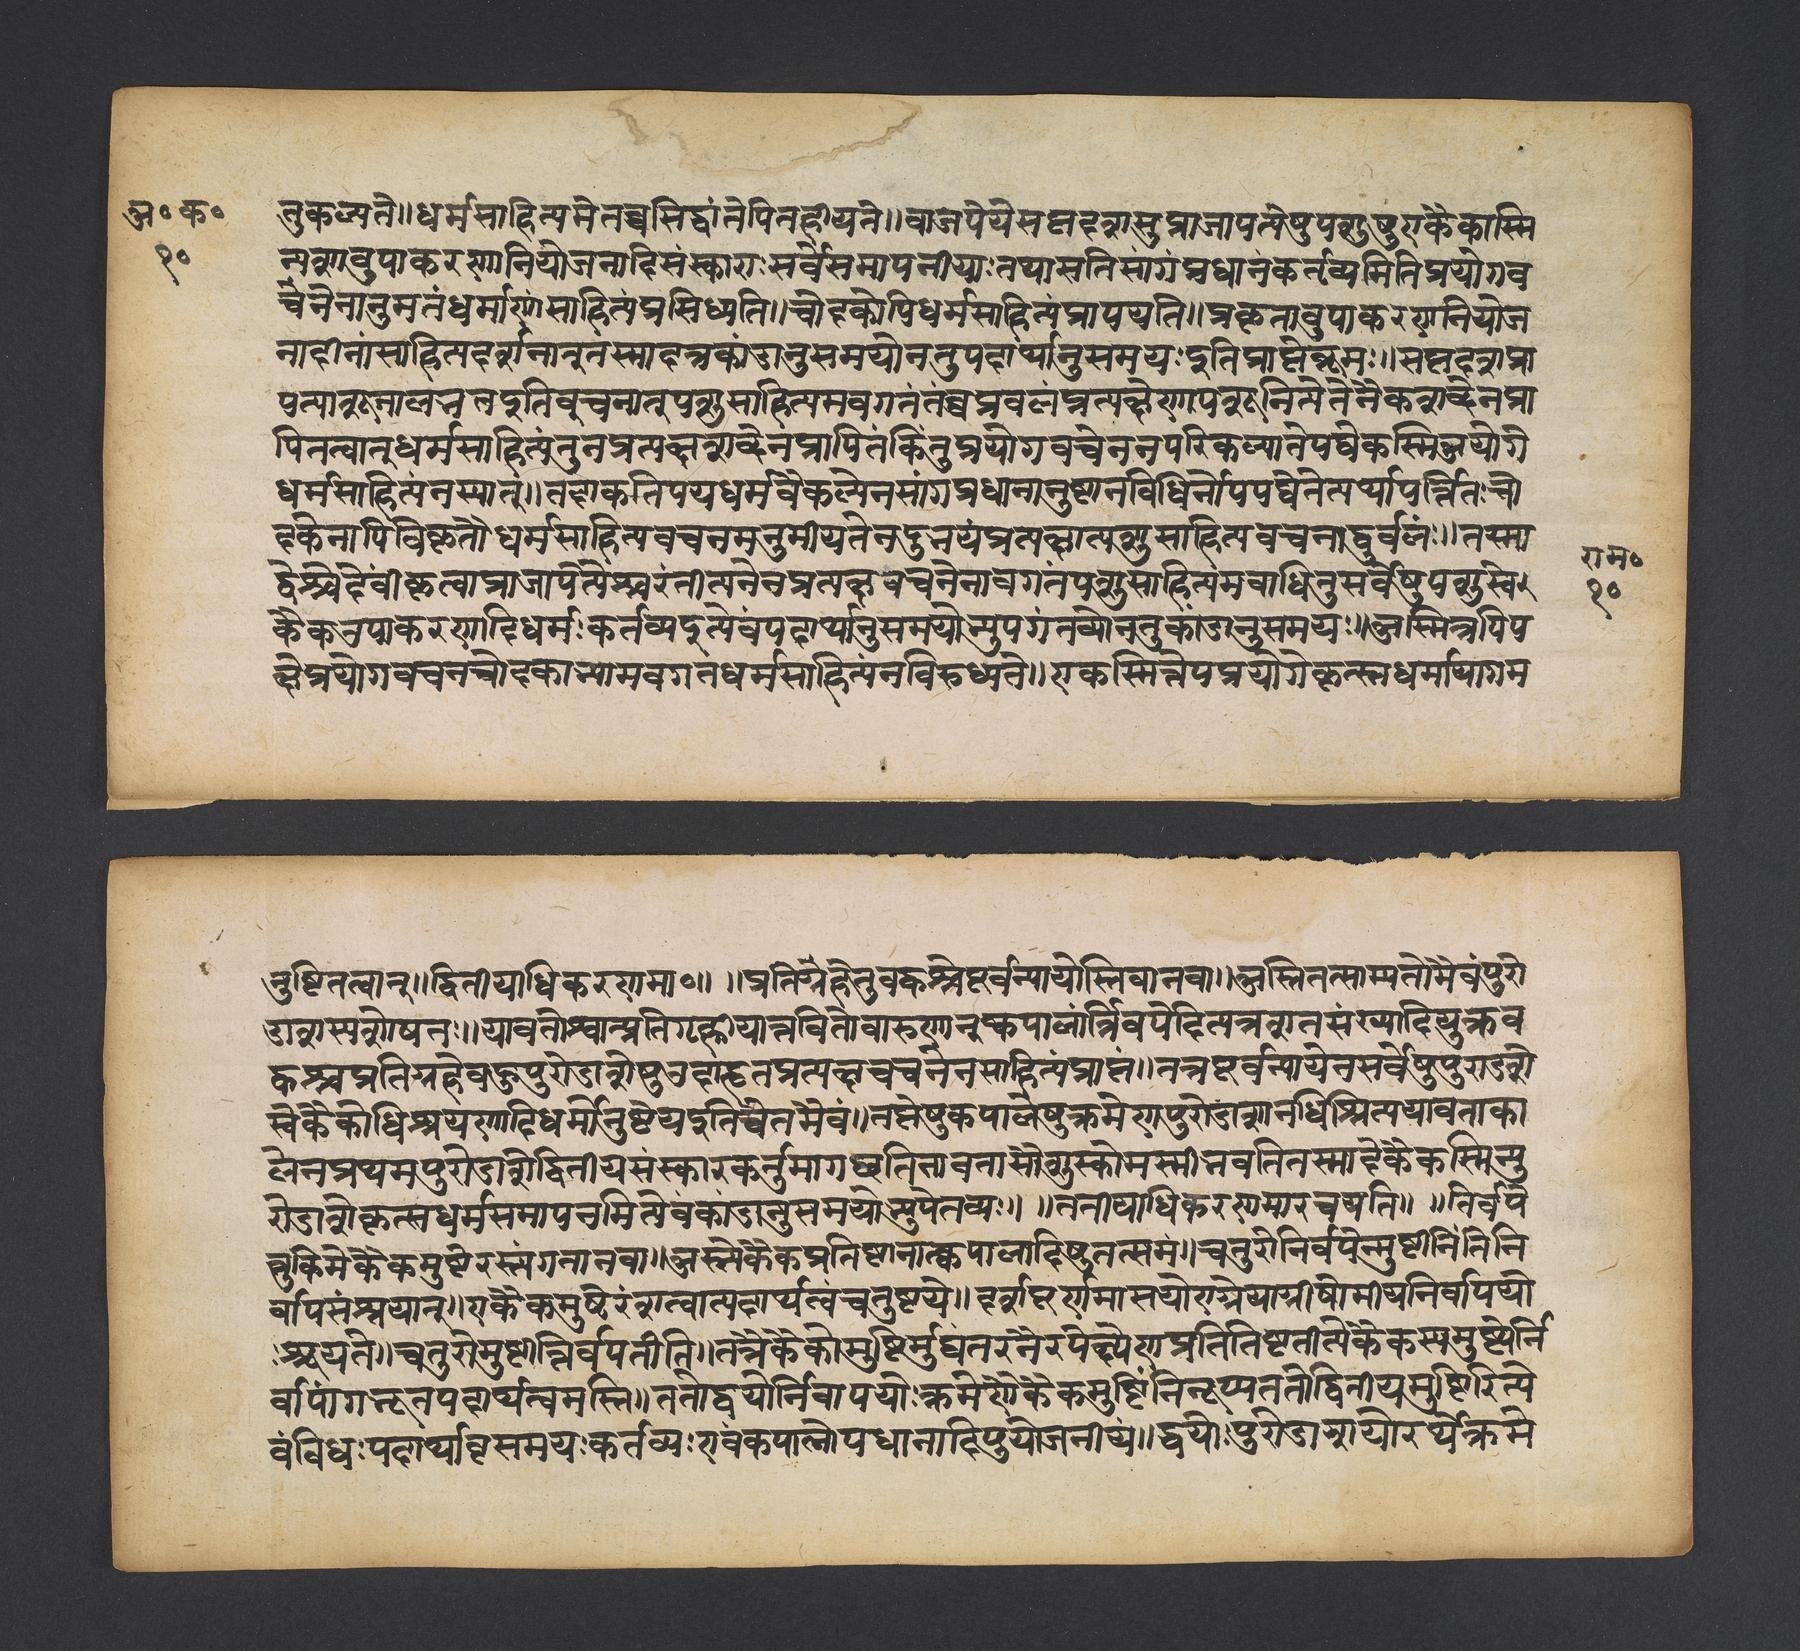 अ॰ क॰
१०
नुकल्प्यते॥धर्मसाहित्यमेतच्चसिद्धांतेपिनहीयते॥वाजपेयेसप्तदशसुप्राजापत्येषुपशुषुएकैकास्मि
न्पशावुपाकरणानियोजनादिसंस्काराःसर्वेसमापनीयाःतथासतिसांगंप्रधानंकर्तव्यमितिप्रयोगव
चनेनानुमतंधर्माणांसाहित्यंप्रसिध्यति॥चोदकोपिधर्मसाहित्यंप्रापयति॥प्रकृतावुपाकरणनियोज
नादीनांसाहित्यदर्शनात्तस्मादत्रकांडानुसमयोनतुपदार्थानुसमयःइतिप्राप्तेब्रूमः॥सप्तदशप्रा
पत्यान्पशूनालभतइतिवचनात्पशुसाहित्यमवगतंतच्चप्रबलंप्रत्यक्षेणपशूनित्येतेनैकशब्देनप्रा
पितत्वात्धर्मसाहित्यंतुनप्रत्यक्षशब्देनप्रापितंकिंतुप्रयोगवचनेनपरिकल्प्यतेयद्येकस्मिन्प्रयोगे
धर्मसाहित्यंनस्यात्॥तदाकतिपयधर्मवैकल्येनसांगप्रधानानुष्ठानविधिर्नोपपद्येतेत्यर्थापत्तितःचो
दकेनापिविकृतौधर्मसाहित्यवचनमनुमीयतेतदुभयंप्रत्यक्षात्पशुसाहित्यवचनाद्दुर्बलं॥तस्मा
द्वैश्वदेवींकृत्वाप्राजापत्यैश्चरंतीत्यनेनप्रत्यक्षवचनेनावगतंपशुसाहित्यमबाधितुसर्वेषुपशुस्वे
कैकउपाकरणादिधर्मःकर्तव्यइत्येवंपदार्थानुसमयोभ्युपगंतव्योनतुकांडानुसमयः॥अस्मिन्नपिप
क्षेप्रयोगवचनचोदकाभ्यामवगतधर्मसाहित्यंनविरुध्यते॥एकस्मिन्नेवप्रयोगेकृत्स्नधर्माणाम
राम॰
१०
नुष्ठितत्वात्॥द्वितीयाधिकरणमा॰॥ ॥प्रतिग्रहेतुवकश्चेपूर्वन्यायोस्तिवानवा॥अस्तितत्साम्यतोमैवंपुरो
डाशस्यशोषतः॥यावतोश्वान्प्रतिगृह्णीयात्तावतोवारुणांचतुष्कपालान्निर्वपेदित्यत्रशतसंख्यादियुक्तव
कश्चप्रतिग्रहेबहुपुरोडाशेषुउदाहृतप्रत्यक्षवचनेनसाहित्यंप्राप्तं॥तत्रपूर्वन्यायेनसर्वेषुपुरोडाशे
स्वेकैकोधिश्रयणादिधर्मोनुष्ठेयइतिचेन्मैवं॥तप्तेषुकपालेषुक्रमेणपुरोडाशानधिश्रित्ययावताका
लेनप्रथमपुरोडाशेद्वितीयसंस्कारकर्तुमागछतितावतासौशुष्कोभस्मीभवतितस्मादेकैकस्मिन्पु
रोडाशेकृत्स्नधर्मसमापनमित्येवंकांडानुसमयोभ्युपेतव्यः॥ ॥तृतीयाधिकरणमारचयति॥ ॥निर्वपे
त्तुकिमेकैकमुष्टेरस्त्यंगतानवा॥अस्त्येकैकप्रतिष्ठानात्कपालादिषुतत्समं॥चतुरोनिर्वपेन्मुष्टीनितिनि
र्वापसंश्रयात्॥एकैकमुष्टिरंशत्वात्पदार्थत्वंचतुष्टये॥दर्शपूर्णमासयोराग्नेयाग्नीषोमीयनिर्वापयो
ःश्रूयते॥चतुरोमुष्टीन्निर्वपतीति॥तत्रैकैकोमुष्टिर्मुष्ट्यंतरनैरपेक्ष्येणप्रतितिष्ठतीत्येकैकस्यमुष्टेर्नि
र्वापांगत्वात्पदार्थत्वमस्ति॥ततोद्वयोर्निर्वापयोःक्रमेणैकैकमुष्टिंनिरुप्यततोद्वितीयमुष्टिरित्ये
वंविधःपदार्थानुसमयःकर्तव्यःएवंकपालोपधानादिषुयोजनीयं॥द्वयोःपुरोडाशयोरर्थेक्रमे